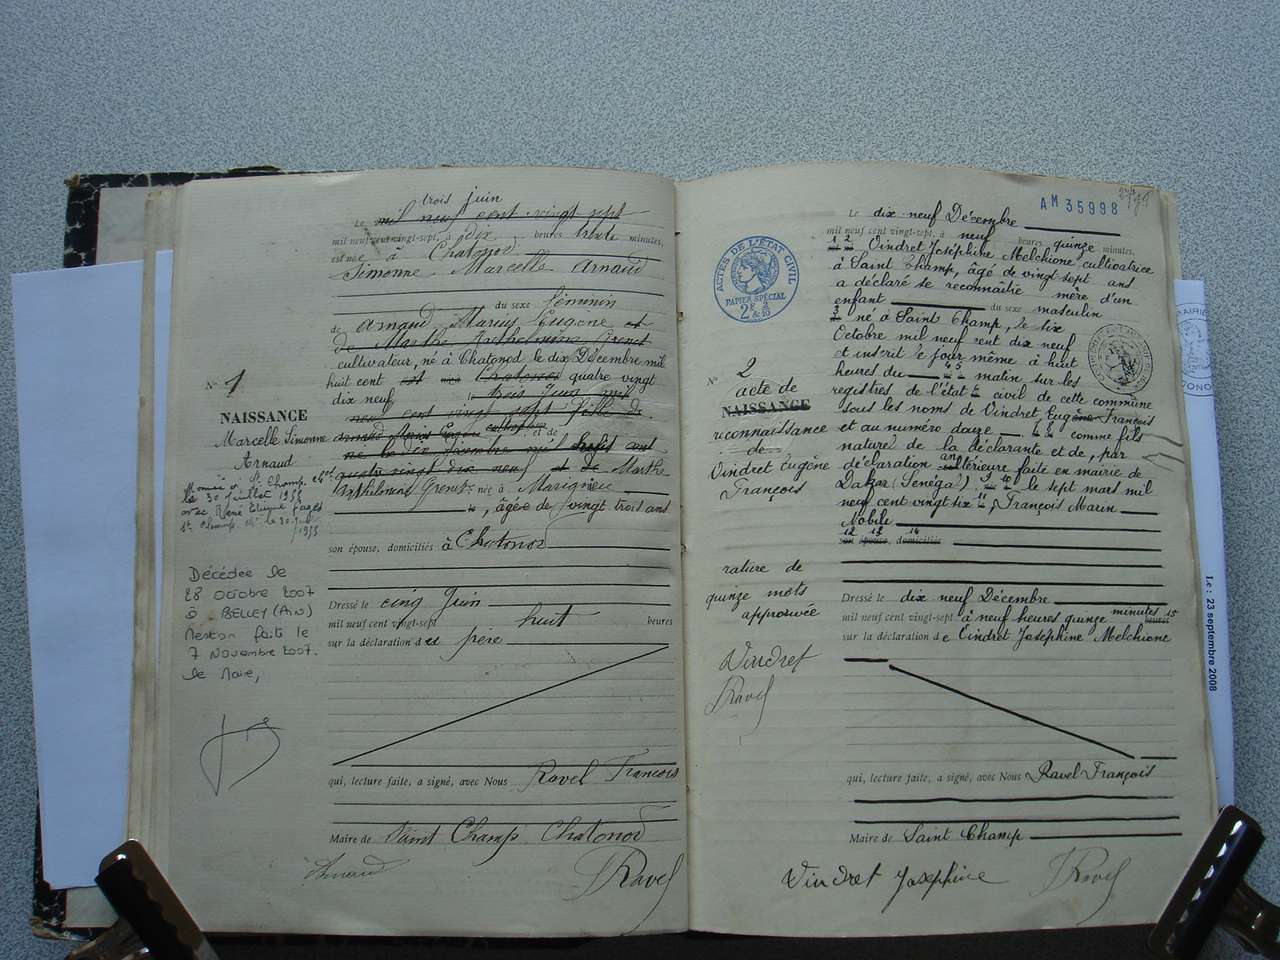 trois juin
Le mil neuf cent vingt sept
mil neuf cent vingt-sept, à dix heures trente minutes,
est née à Chatonod
Simonne Marcelle Arnaud
du sexe féminin
de Arnaud Marius Eugène et
de Marthe Anthelmine Grenet
cultivateur, né à Chatonod le dix Décembre mil
huit cent est née Chatonod quatre vingt
dix neuf le trois Juin mil
neuf cent vingt sept fille de
Arnaud Marius Eugène cultivateur et de
né le dix Décembre mil huit cent
quatre vingt dix neuf et de Marthe
Anthelmine Grenet née à Marignieu
, âgée de vingt trois ans
son épouse, domiciliés à Chatonod
Dressé le cinq Juin
mil neuf cent vingt-sept huit heures
sur la déclaration du père
qui, lecture faite, a signé, avec Nous Ravel François
Maire de Saint Champ Chatonod
Arnaud
Ravel
N° 1
NAISSANCE
Marcelle Simonne
Arnaud
Mariée à St Champ
le 30 juillet 1955
avec René Etienne Fages
St Champ le 30 
1955
Décédée le
28 octobre 2007
à BELLEY (AIN)
Mention faite le
7 Novembre 2007.
Le Maire,
AM 35998
ACTES DE L'ÉTAT CIVIL
PAPIER SPÉCIAL
2F &
Le dix neuf Décembre
mil neuf cent vingt-sept, à neuf heures quinze minutes,
1 2
Vindret Joséphine Melchione cultivatrice
à Saint Champ, âgé de vingt sept ans
a déclaré se reconnaître mère d'un
enfant du sexe masculin
3 né à Saint Champ, le six
Octobre mil neuf cent dix neuf
et inscrit le jour même à huit
heures du 4 5 matin sur les
registres de l'état civil de cette commune
sous les noms de Vindret, Eugène François
et au numéro douze comme fils
naturel de la déclarante et de, par
déclaration antérieure faite en mairie de
Dakar (Sénégal) le sept mars mil
neuf cent vingt six, François Marin
Nobile
12 13 14
son épouse, domiciliés
Dressé le dix neuf Décembre
mil neuf cent vingt-sept à neuf heures quinze minutes 15 heures
sur la déclaration de Vindret Joséphine Melchione
qui, lecture faite, a signé, avec Nous Ravel François
Maire de Saint Champ
Vindret Joséphine
Ravel
N° 2
acte de
NAISSANCE
reconnaissance
de
Vindret Eugène
François
rature de
quinze mots
approuvée
Vindret
Ravel
MAIRIE
Le : 23 septembre 2008